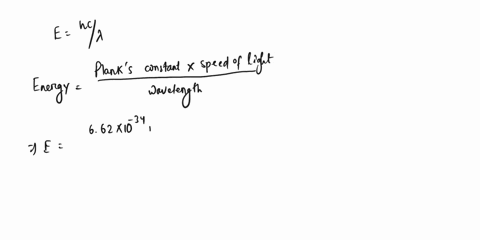 E = hc/λ
Energy = Plank's constant × speed of light / wavelength
⇒ E = 6.62 × 10^-34